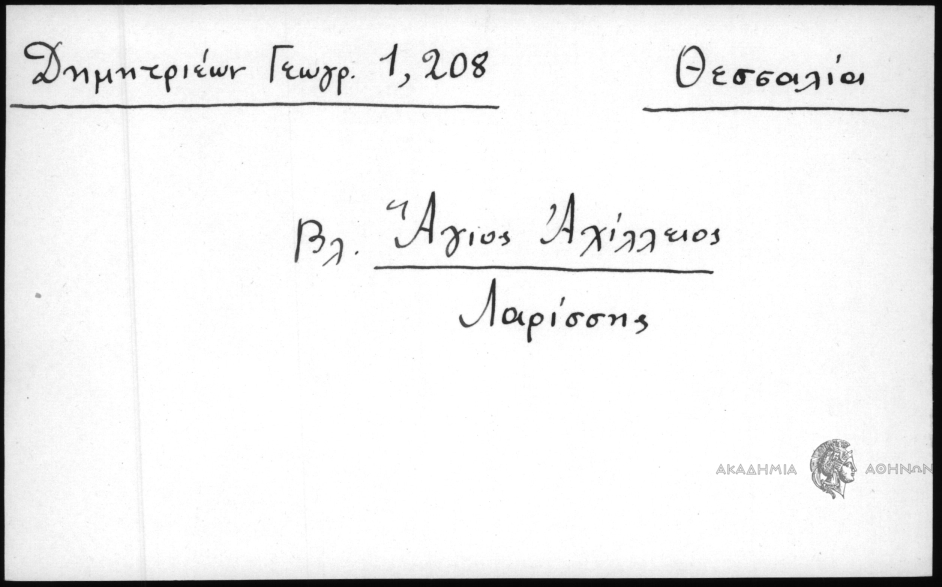 Δημητριέων Γεωγρ. 1,208
Θεσσαλία
Βλ. Ἅγιος Ἀχίλλειος
Λαρίσσης
ΑΚΑΔΗΜΙΑ ΑΘΗΝΩΝ